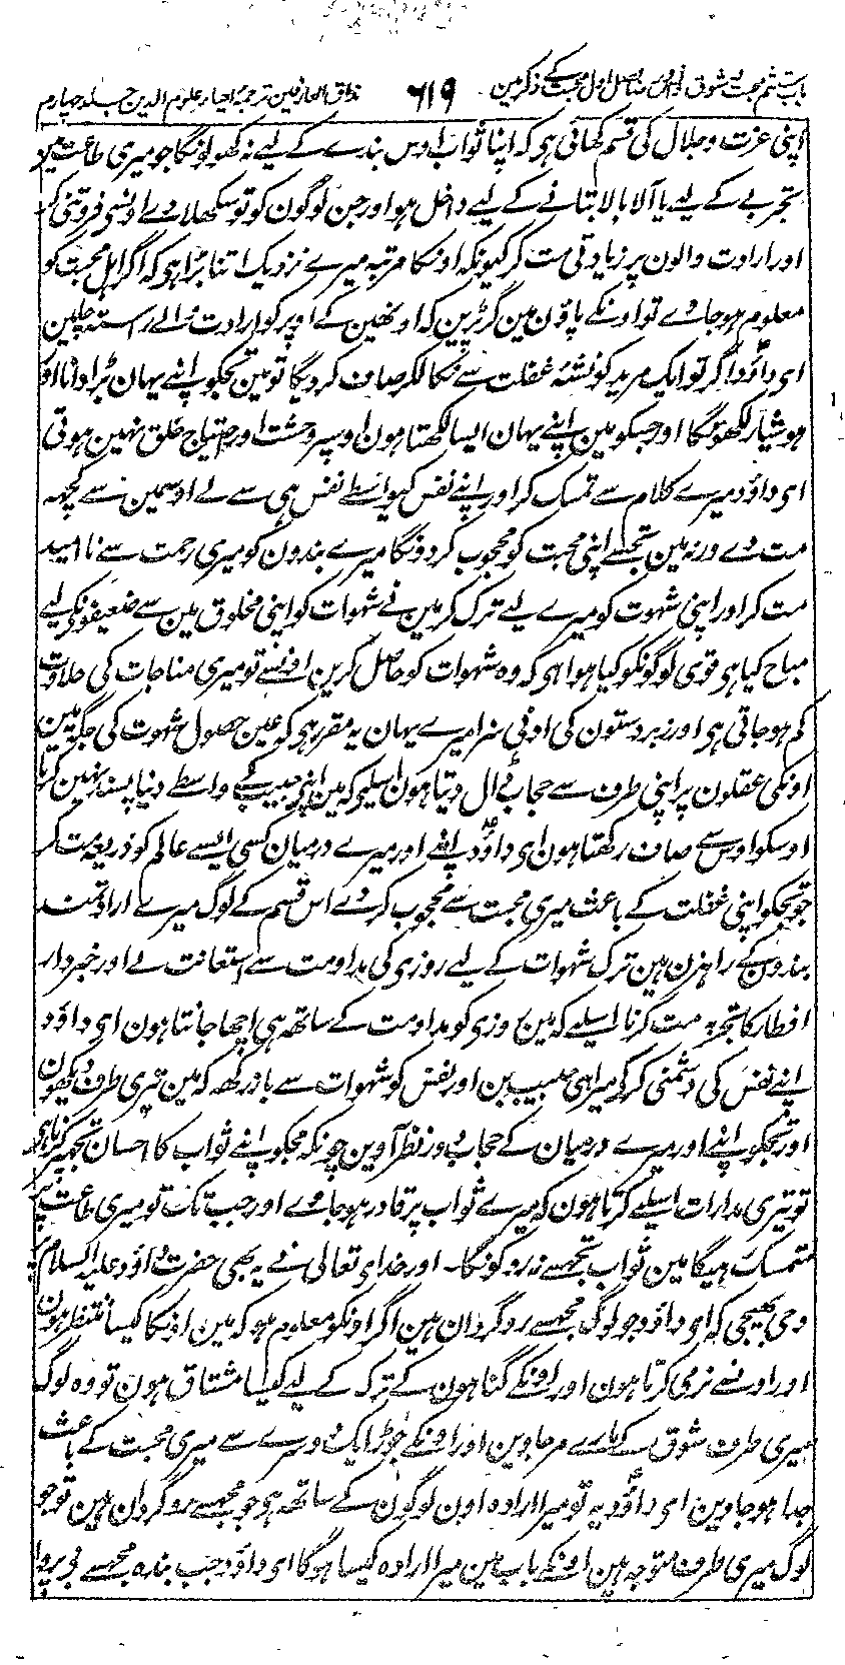 باب ششم محبت و شوق اول محبت کے ذکر مین ۶۱۹ مذاق العارفین ترجمہ احیاء علوم الدین جلد چہارم
اپنی عزت و جلال کی قسم کھائی ہی کہ اپنا ثواب اوس بندے کے لیے نہ کھولونگا جو میری طاعت مین
تجربے کے لیے یا آلا بالا بتانے کے لیے داخل ہو اور جن لوگون کو تو سکھلاوے اونسے فروتنی کر
اور ارادت والون پر زیادتی مت کر کیونکہ اونکا مرتبہ میرے نزدیک اتنا بڑا ہی کہ اگر اہل محبت کو
معلوم ہو جاوے تو اونکے پاؤن مین گر پڑین کہ اونھین کے اوپر کو ارادت والے راستہ چلین
ای داؤد اگر تو ایک مرید کو نشۂ غفلت سے نکالکر صاف کر دیگا تو مین تجکو اپنے یہان بڑا دانا اور
ہوشیار لکھونگا اور جسکو مین اپنے یہان ایسا لکھتا ہون اوسپر وحشت اور احتیاج خلق نہین ہوتی
ای داؤد میرے کلام سے تمسک کر اور اپنے نفس کیواسطے نفس ہی سے لے اوسمین سے کچھہ
مت دے ورنہ مین تجھسے اپنی محبت کو محجوب کر دونگا میرے بندون کو میری رحمت سے نا امید
مت کر اور اپنی شہوت کو میرے لیے ترک کر مین نے شہوات کو اپنی مخلوق مین سے ضعیفونکے لیے
مباح کیا ہی قوی لوگونکو کیا ہوا ہی کہ وہ شہوات کو حاصل کرین اونسے تو میری مناجات کی حلاوت
کم ہو جاتی ہی اور زبردستون کی ادنی سزا میرے یہان یہ مقرر ہی کہ عین حصول شہوت کی جگہ مین
اونکی عقلون پر اپنی طرف سے حجاب ڈال دیتا ہون اسلیے کہ مین اپنے حبیب کے واسطے دنیا پسند نہین کرتا
اوسکو اوس سے صاف رکھتا ہون ای داؤد اپنے اور میرے درمیان کسی ایسے عالم کو ذریعہ مت کر
جو تجکو اپنی غفلت کے باعث میری محبت سے محجوب کر دے اس قسم کے لوگ میرے ارادتمند
بندون کے راہزن ہین ترک شہوات کے لیے روزی کی مداومت سے استعانت لے اور خبردار
افطار کا تجربہ مت کرنا اسلیے کہ مین روزی کو مداومت کے ساتھہ ہی اچھا جانتا ہون ای داؤد
اپنے نفس کی دشمنی کر کر میرا ہی حبیب بن اور نفس کو شہوات سے باز رکھہ کہ مین تیری طرف دیکھون
اور تجکو اپنے اور میرے درمیان کے حجاب دور نظر آوین چونکہ تجکو اپنے ثواب کا احسان تجھپر کرنا ہی
تو تیری مدارات اسلیے کرتا ہون کہ میرے ثواب پر قادر ہو جاوے اور جب تک تو میری طاعت پر
متمسک رہیگا مین ثواب تجھسے نہ روکونگا۔ اور خدای تعالی نے یہ بھی حضرت داؤد علیہ السلام پر
وحی بھیجی کہ ای داؤد جو لوگ مجھسے روگردان ہین اگر اونکو معلوم ہو کہ مین اونکا کیسا منتظر ہون
اور اونسے نرمی کرتا ہون اور اونکے گناہون کے ترک کے لیے کیسا مشتاق ہون تو وہ لوگ
میری طرف شوق کے مارے مر جاوین اور اونکے جوڑ ایک دوسرے سے میری محبت کے باعث
جدا ہو جاوین ای داؤد یہ تو میرا ارادہ اون لوگون کے ساتھہ ہی جو مجھسے روگردان ہین تو جو
لوگ میری طرف متوجہ ہین اونکے باب مین میرا ارادہ کیسا ہوگا ای داؤد جب بندہ مجھسے بے پروا